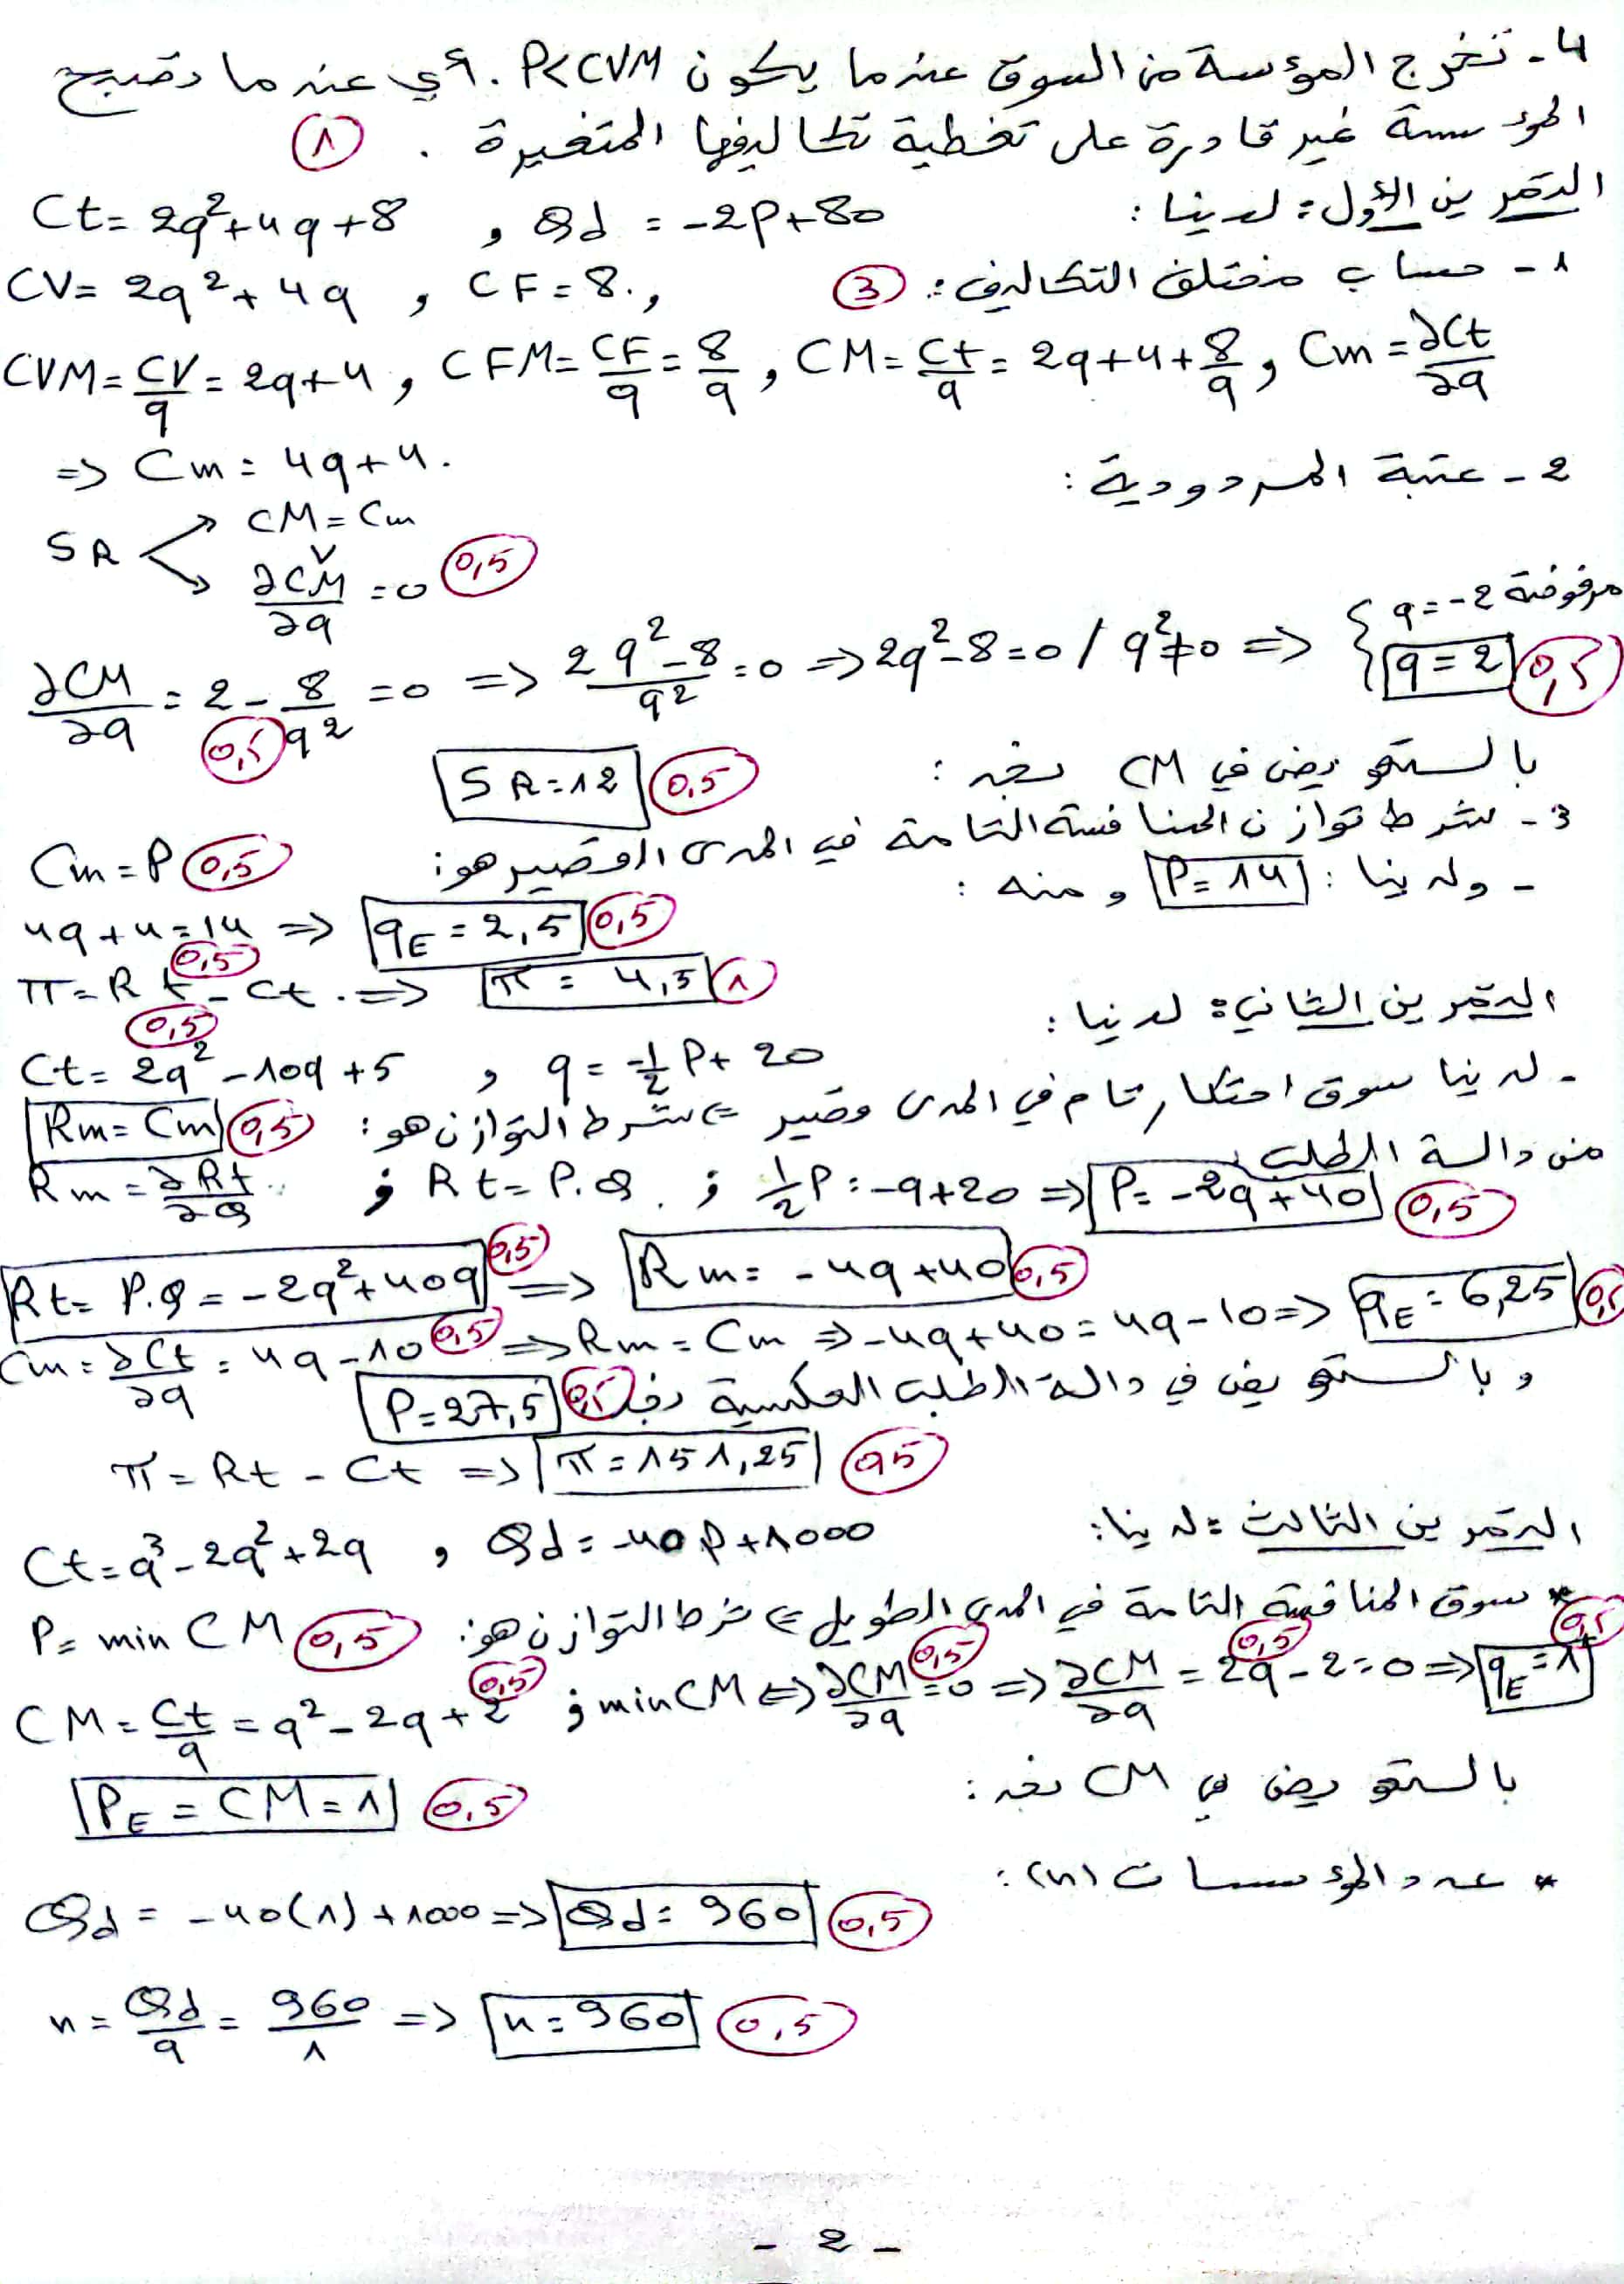 4- تخرج المؤسسة من السوق عندما يكون P<CVM. أي عندما تصبح
المؤسسة غير قادرة على تغطية تكاليفها المتغيرة. (1)
التمرين الأول: لدينا:
Ct = 2q²+4q+8 , Qd = -2P+80
1- حساب مختلف التكاليف: (3)
CV = 2q²+4q , CF = 8. ,
CVM = CV/q = 2q+4 , CFM = CF/q = 8/q , CM = Ct/q = 2q+4+8/q , Cm = ∂Ct/∂q
=> Cm = 4q+4.
2- عتبة المردودية:
SR CM = Cm
∂CM/∂q = 0 (0,5)
∂CM/∂q = 2 - 8/q² = 0 (0,5) => (2q²-8)/q² = 0 => 2q²-8=0 / q²≠0 => { q=-2 مرفوضة
q=2 (0,5)
بالتعويض في CM نجد:
SR=12 (0,5)
3- شرط توازن المنافسة التامة في المدى القصير هو:
Cm = P (0,5)
- ولدينا: P=14 ومنه:
4q+4=14 => qE = 2,5 (0,5)
(0,5)
π = Rt - Ct. => π = 4,5 (1)
(0,5)
التمرين الثاني: لدينا:
Ct = 2q²-10q+5 , q = -1/2 P+20
- لدينا سوق احتكار تام في المدى قصير <= شرط التوازن هو:
Rm = Cm (0,5)
من دالة الطلب
Rm = ∂Rt/∂Q ; Rt = P.Q ; 1/2 P = -q+20 => P = -2q+40 (0,5)
Rt = P.Q = -2q²+40q (0,5) => Rm = -4q+40 (0,5)
Cm = ∂Ct/∂q = 4q-10 (0,5) => Rm = Cm => -4q+40 = 4q-10 => qE = 6,25 (0,5)
وبالتعويض في دالة الطلب العكسية نجد P=27,5 (0,5)
π = Rt - Ct => π = 151,25 (0,5)
التمرين الثالث: لدينا:
Ct = q³-2q²+2q , Qd = -40P+1000
* سوق المنافسة التامة في المدى الطويل <= شرط التوازن هو:
P = min CM (0,5)
CM = Ct/q = q²-2q+2 (0,5) ; minCM <=> ∂CM/∂q = 0 (0,5) => ∂CM/∂q = 2q-2=0 (0,5) => qE = 1 (0,5)
بالتعويض في CM نجد:
PE = CM = 1 (0,5)
* عدد المؤسسات (n):
Qd = -40(1)+1000 => Qd = 960 (0,5)
n = Qd/q = 960/1 => n = 960 (0,5)
- 2 -